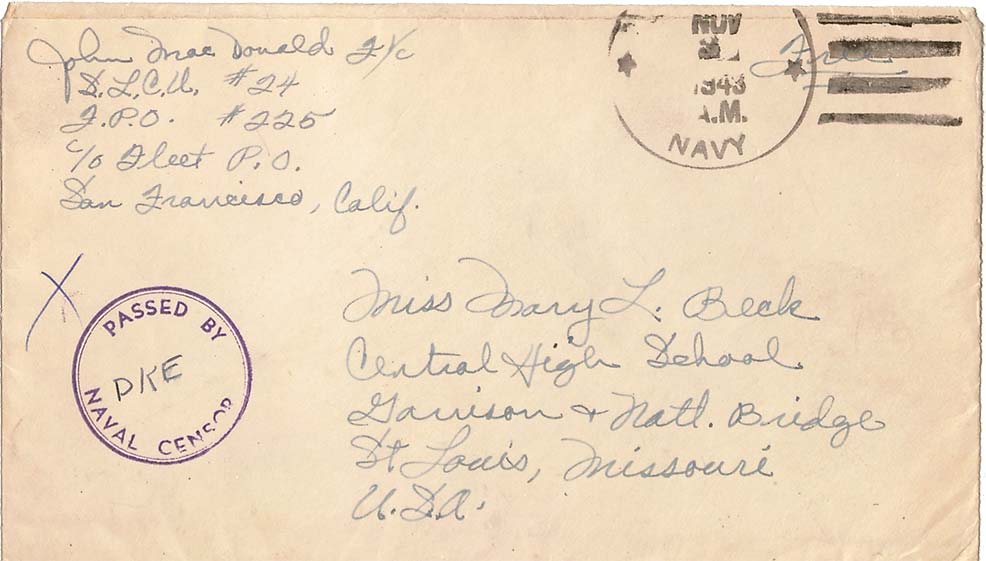 John MacDonald F 1/c
S.L.C.U. #24
F.P.O. #225
c/o Fleet P.O.
San Francisco, Calif.
NOV
1943
A.M.
NAVY
Free
X
PASSED BY
DKE
NAVAL CENSOR
Miss Mary L. Beck
Central High School
Garrison + Natl. Bridge
St Louis, Missouri
U.S.A.